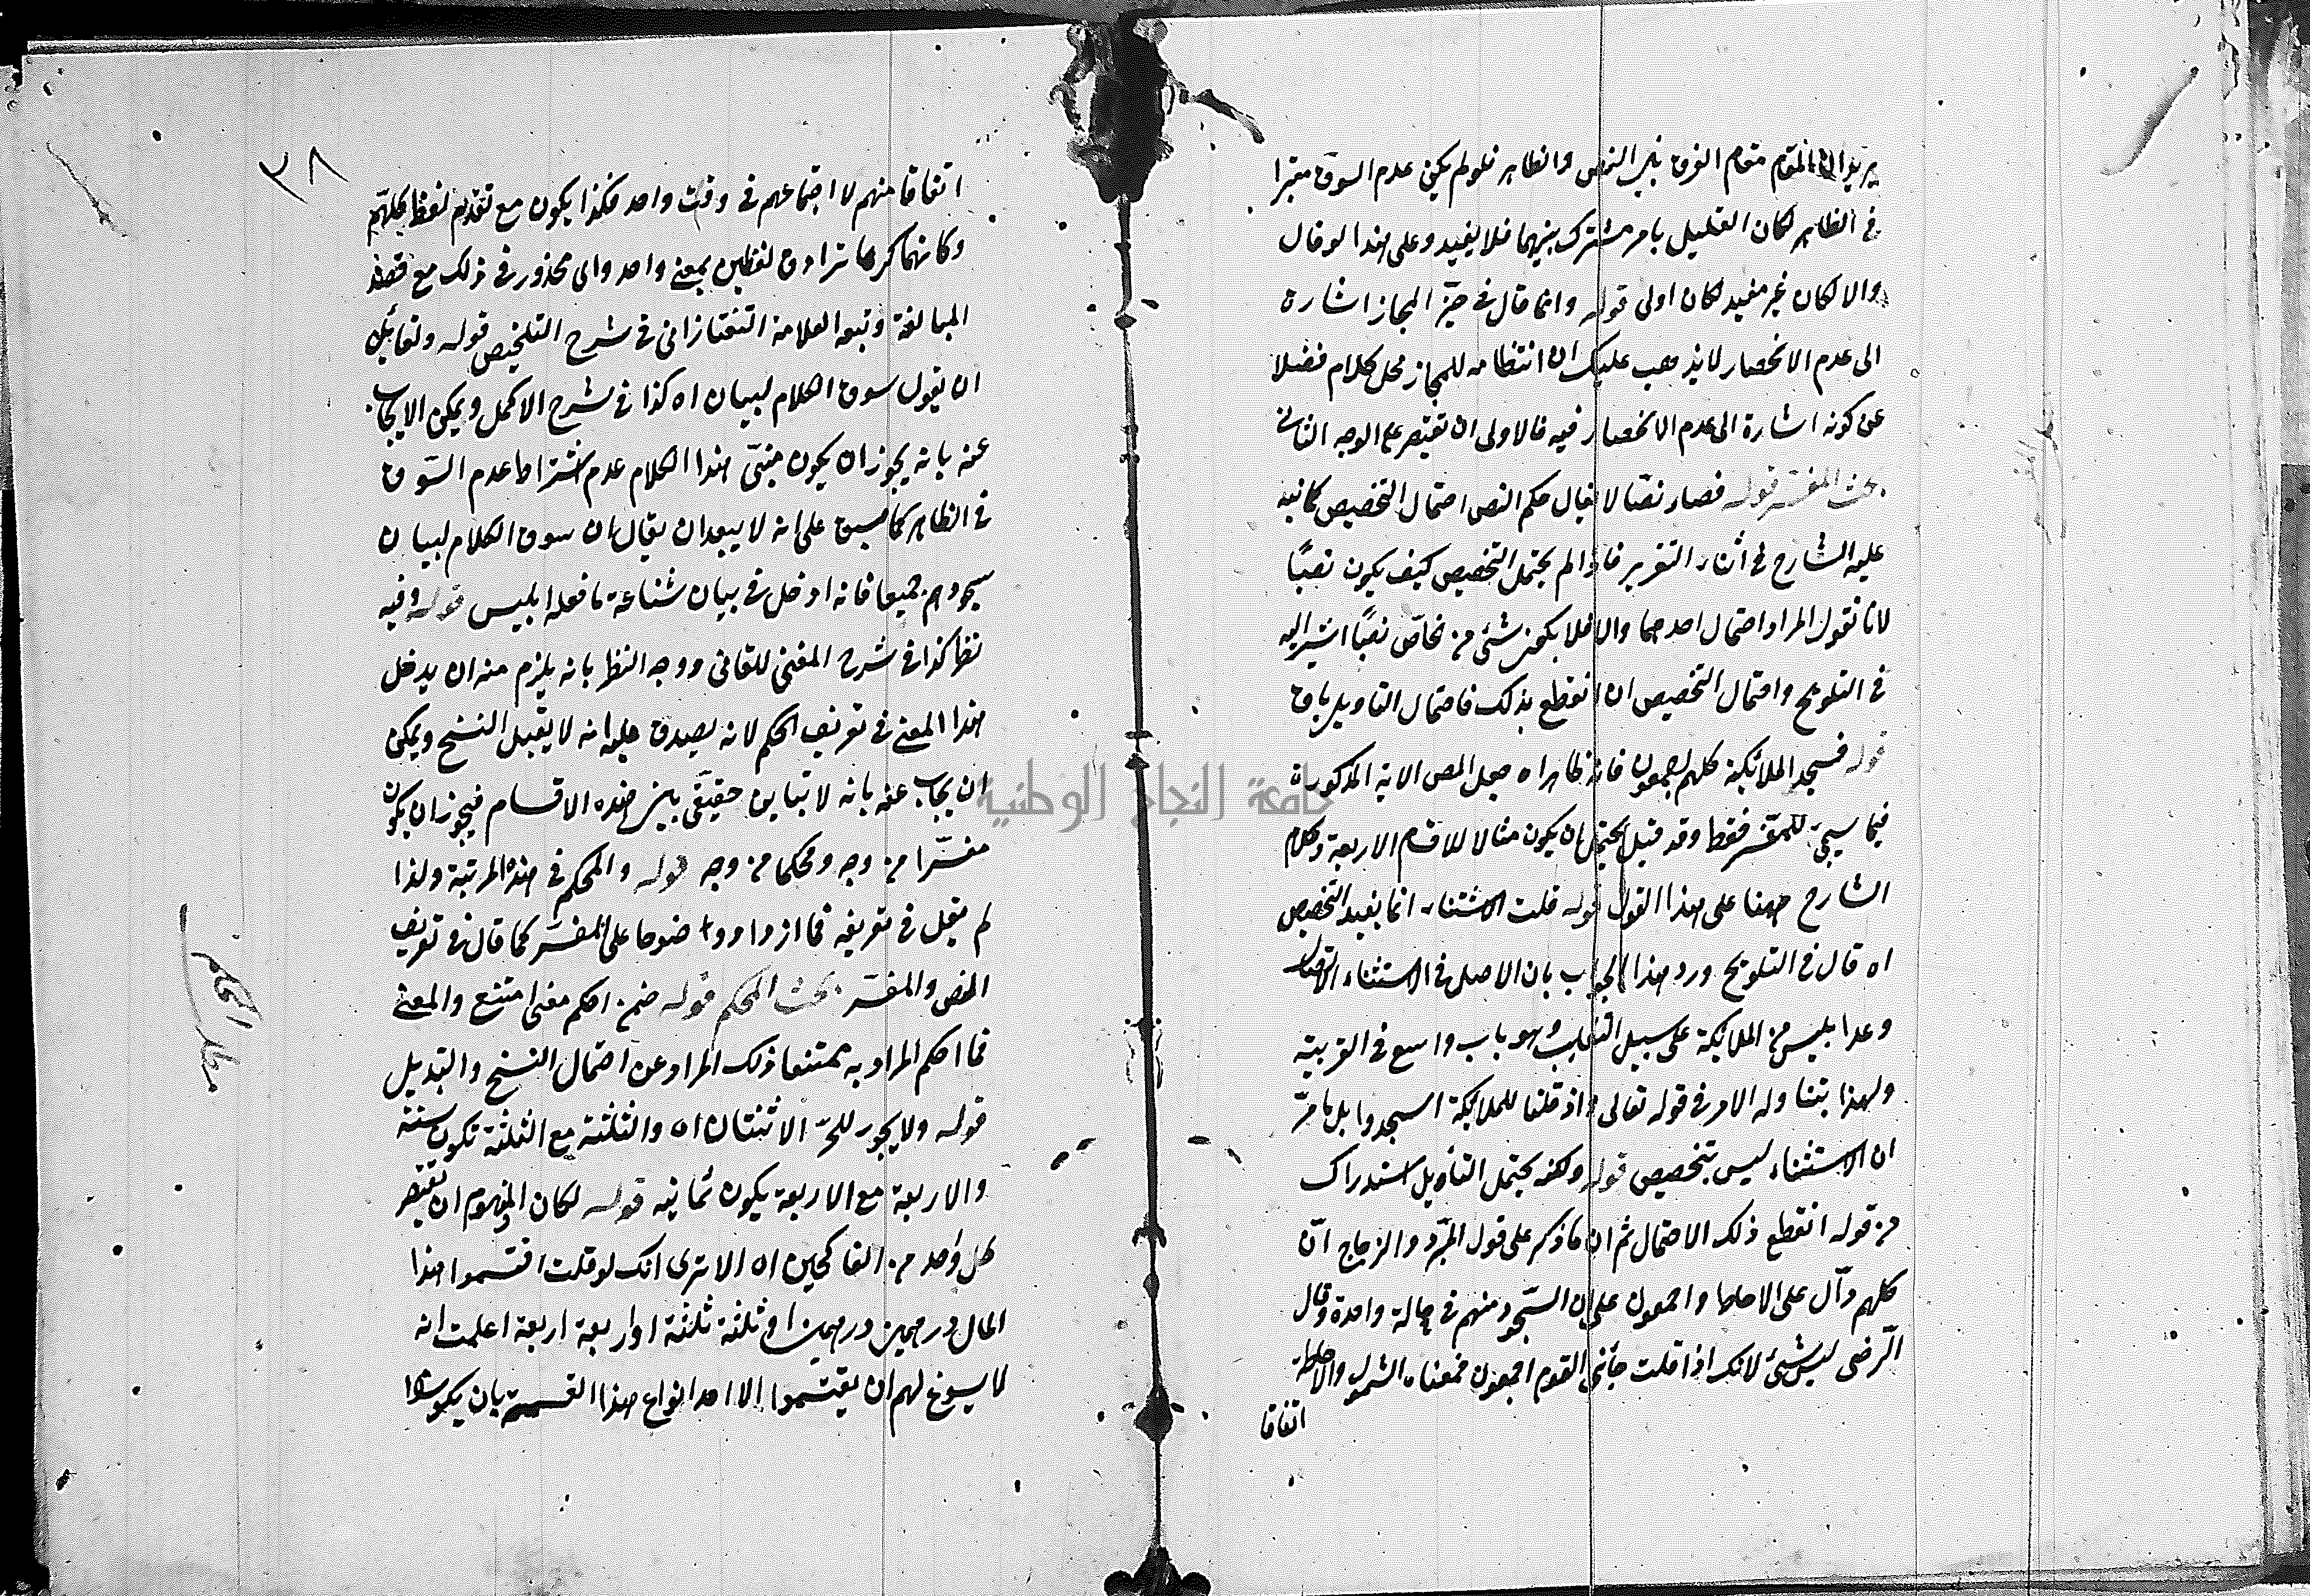 يريد ان المقام مقام الفرق بين النص والظاهر فلو لم يكن عدم السوق معتبرا
في الظاهر لكان التعليل بامر مشترك بينهما فلا يفيد وعلى هذا لو قال
والا لكان غير مفيد لكان اولى قوله وانما قال في حيز المجاز اشارة
الى عدم الانحصار لا يذهب عليك ان انتظامه للمجاز محل كلام فضلا
عن كونه اشارة الى عدم الانحصار فيه فالاولى ان تقتصر على الوجه الثاني
بحث المفسر قوله فصار نصا لا يقال حكم النص احتمال التخصيص كما نبه
عليه الشارح في أثناء التقرير فاذا لم يحتمل التخصيص كيف يكون نصًا
لانا نقول المراد احتمال احدهما والا فلا يكون شئ من خاص نصًا اشير اليه
في التلويح واحتمال التخصيص ان انقطع بذلك فاحتمال التاويل باق
قوله فسجد الملائكة كلهم اجمعون فانه ظاهر اه جعل المص الاية المذكورة
فيما سيجئ للمفسر فقط وقد قيل يحتمل ان يكون مثالا للاقسام الاربعة وكلام
الشارح ههنا على هذا القول قوله قلت الاستثناء انما يفيد التخصيص
اه قال في التلويح ورد هذا الجواب بان الاصل في الاستثناء الاتصال
وعد ابليس من الملائكة على سبيل التغليب وهو باب واسع في العربية
ولهذا يتناوله الامر في قوله تعالى واذ قلنا للملائكة اسجدوا بل ما مر
ان الاستثناء ليس بتخصيص قوله ولكنه يحتمل التأويل استدراك
من قوله انقطع ذلك الاحتمال ثم ان ما ذكر على قول المبرد والزجاج انّ
كلهم دآل على الاحاطة واجمعون على ان السجود منهم في حالة واحدة وقال
الرضى ليس بشئ لانك اذا قلت جاءني القوم اجمعون فمعناه الشمول والاحاطة
اتفاقا
٣٨
اتفاقا منهم لا اجتماعهم في وقت واحد فكذا يكون مع تقديم لفظ كلهم
وكانهما كرها ترادف لفظين بمعنى واحد واى محذور في ذلك مع قصد
المبالغة وتبعه العلامة التفتازانى في شرح التلخيص قوله ولقائل
ان يقول سوق الكلام لبيان اه كذا في شرح الاكمل ويمكن الايجاب
عنه بانه يجوز ان يكون مبنى هذا الكلام عدم اشتراط عدم السوق
في الظاهر كما سبق على انه لا يبعد ان يقال ان سوق الكلام لبيان
سجودهم جميعا فانه ادخل في بيان شناعة ما فعله ابليس قوله وفيه
نظر كذا في شرح المغنى للقانى ووجه النظر بانه يلزم منه ان يدخل
هذا المعنى في تعريف الحكم لانه يصدق عليه انه لا يقبل النسخ ويمكن
ان يجاب عنه بانه لا تباين حقيقى بين هذه الاقسام فيجوز ان يكون
مفسّرا من وجه ومحكما من وجه قوله والمحكم في هذه المرتبة ولذا
لم يقل في تعريفه فما ازداد وضوحا على المفسر كما قال في تعريف
النص والمفسر بحث المحكم قوله ضمن احكم معنى امتنع والمعنى
فما احكم المراد به ممتنعا ذلك المراد عن احتمال النسخ والتبديل
قوله ولا يجوز للحرّ الا ثنتان اه والثلثة مع الثلثة تكون ستة
والاربعة مع الاربعة يكون ثمانية قوله لكان المفهوم ان يقتصر
كل واحد من الناكحين اه الا ترى انك لو قلت اقتسموا هذا
المال درهمين درهمين او ثلثة ثلثة او اربعة اربعة اعلمت انه
لا يسوغ لهم ان يقتسموا الا احد انواع هذا القسمة بان يكون
مطلب المحكم
جامعة النجاح الوطنية